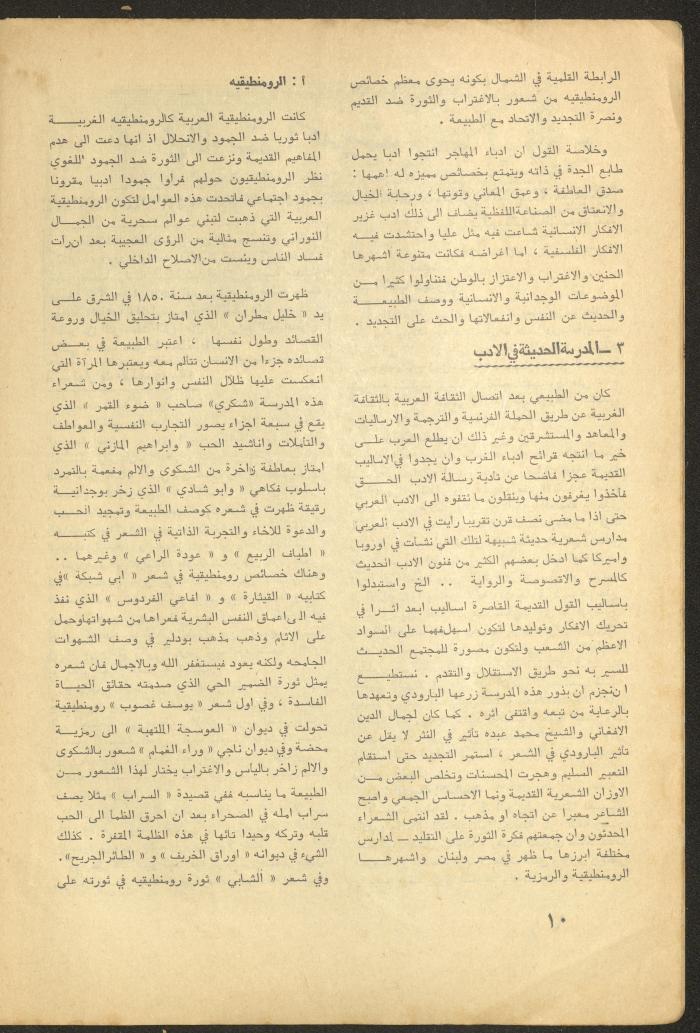 الرابطة القلمية في الشمال بكونه يحوى معظم خصائص
الرومنطيقيه من شعور بالاغتراب والثورة ضد القديم
ونصرة التجديد والاتحاد مع الطبيعة .
وخلاصة القول ان ادباء المهاجر انتجوا ادبا يحمل
طابع الجدة في ذاته ويتمتع بخصائص مميزه له اهمها :
صدق العاطفة ، وعمق المعاني وقوتها ، ورحابة الخيال
والانعتاق من الصناعةاللفظية يضاف الى ذلك ادب غزير
الافكار الانسانية شاعت فيه مثل عليا واحتشدت فيــه
الافكار الفلسفية ، اما اغراضه فكانت متنوعة اشهرها
الحنين والاغتراب والاعتزاز بالوطن فتناولوا كثيرا مــن
الموضوعات الوجدانية والانسانية ووصف الطبيعــــة
والحديث عن النفس وانفعالاتها والحث على التجديد .
٣ ــ المدرسة الحديثة في الادب
كان من الطبيعي بعد اتصال الثقافة العربية بالثقافة
الغربية عن طريق الحملة الفرنسية والترجمة والارساليات
والمعاهد والمستشرقين وغير ذلك ان يطلع العرب علــى
خير ما انتجه قرائح ادباء الغرب وان يجدوا في الاساليب
القديمة عجزا فاضحا عن تادية رسالة الادب الحــق
فأخذوا يغرفون منها وينقلون ما ثقفوه الى الادب العربي
حتى اذا ما مضى نصف قرن تقريبا رايت في الادب العربي
مدارس شعرية حديثة شبيهة لتلك التي نشأت في اوروبا
واميركا كما ادخل بعضهم الكثير من فنون الادب الحديث
كالمسرح والاقصوصة والرواية .. الخ واستبدلوا
باساليب القول القديمة القاصرة اساليب ابعد اثــرا في
تحريك الافكار وتوليدها لتكون اسهل فهما على السواد
الاعظم من الشعب ولتكون مصورة للمجتمع الحديــث
للسير به نحو طريق الاستقلال والتقدم . نستطيــع
ا ن نجزم ان بذور هذه المدرسة زرعها البارودي وتعهدها
بالرعاية من تبعه واقتفى اثره . كما كان لجمال الدين
الافغاني والشيخ محمد عبده تأثير في النثر لا يقل عن
تأثير البارودي في الشعر ، استمر التجديد حتى استقام
التعبير السليم وهجرت المحسنات وتخلص البعض مــن
الاوزان الشعرية القديمة ونما الاحساس الجمعي واصبح
الشاعر معبرا عن اتجاه او مذهب . لقد انتمى الشعراء
المحدثون وان جمعتهم فكرة الثورة على التقليد ــ لمدارس
مختلفة ابرزها ما ظهر في مصر ولبنان واشهرهــــا
الرومنطيقية والرمزية .
أ : الرومنطيقيه
كانت الرومنطيقية العربية كالرومنطيقيه الغربيــــة
ادبا ثوريا ضد الجمود والانحلال اذ انها دعت الى هدم
المفاهيم القديمة ونزعت الى الثورة ضد الجمود اللغوي
نظر الرومنطيقيون حولهم فراوا جمودا ادبيا مقرونا
بجمود اجتماعي فاتحدت هذه العوامل لتكون الرومنطيقية
العربية التي ذهبت لتبني عوالم سحرية من الجمــال
النوراني وتنسج مثالية من الرؤى العجيبة بعد ان رات
فساد الناس ويئست من الاصلاح الداخلي .
ظهرت الرومنطيقية بعد سنة ١٨٥٠ في الشرق علــى
يد « خليل مطران » الذي امتاز بتحليق الخيال وروعة
القصائد وطول نفسها ، اعتبر الطبيعة في بعــض
قصائده جزءا من الانسان تتالم معه ويعتبرها المرآة التي
انعكست عليها ظلال النفس وانوارها ، ومن شعراء
هذه المدرسة «شكري» صاحب « ضوء القمر » الذي
يقع في سبعة اجزاء يصور التجارب النفسية والعواطف
والتأملات واناشيد الحب « وابراهيم المازني » الذي
امتاز بعاطفة زاخرة من الشكوى والالم مفعمة بالتمرد
باسلوب فكاهي « وابو شادي » الذي زخر بوجدانيــة
رقيقة ظهرت في شعره كوصف الطبيعة وتمجيد الحــب
والدعوة للاخاء والتجربة الذاتية في الشعر في كتبــــه
« اطياف الربيع » و « عودة الراعي » وغيرهما ..
وهناك خصائص رومنطيقية في شعر « ابي شبكة »في
كتابيه « القيثارة » و « افاعي الفردوس » الذي نفذ
فيه الى اعماق النفس البشرية فعراها من شهواتهاوحمل
على الاثام وذهب مذهب بودلير في وصف الشهوات
الجامحه ولكنه يعود فيستغفر الله وبالاجمال فان شعره
يمثل ثورة الضمير الحي الذي صدمته حقائق الحيــاة
الفاسدة ، وفي اول شعر « يوسف غصوب » رومنطيقية
تحولت في ديوان « العوسجة الملتهبة » الى رمزيــة
محضة وفي ديوان ناجي « وراء الغمام » شعور بالشكوى
والالم زاخر باليأس والاغتراب يختار لهذا الشعور مــن
الطبيعة ما يناسبه ففي قصيدة « السراب » مثلا يصف
سراب امله في الصحراء بعد ان احرق الظما الى الحب
قلبه وتركه وحيدا تائها في هذه الظلمة المقفرة . كذلك
الشيء في ديوانه « اوراق الخريف » و « الطائر الجريح».
وفي شعر « الشابي » ثورة رومنطيقيه في ثورته على
١٠